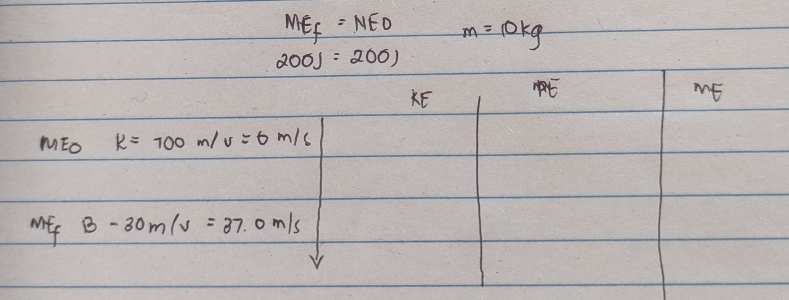 MEf = NEO m = 10kg
200J = 200J
KE PE ME
MEO K = 700 m/v = 6 m/s
MEf B - 30m/v = 37.0 m/s